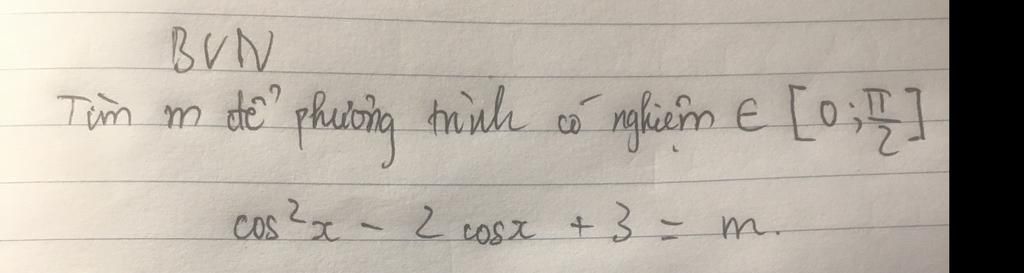 BVN
Tìm m để phương trình có nghiệm ∈ [0; π/2]
cos²x - 2 cosx + 3 = m.